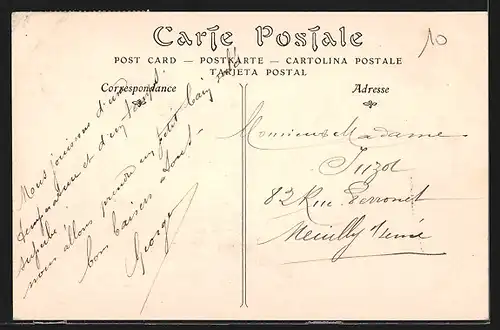 Carte Postale
POST CARD — POSTKARTE — CARTOLINA POSTALE
TARJETA POSTAL
Correspondance
Adresse
10
Nous jouissons d'une
température et d'un temps
superbe
nous allons prendre un petit bain
bons baisers à tous
George
Monsieur Madame
Juzot
82 Rue Perronet
Neuilly s/Seine